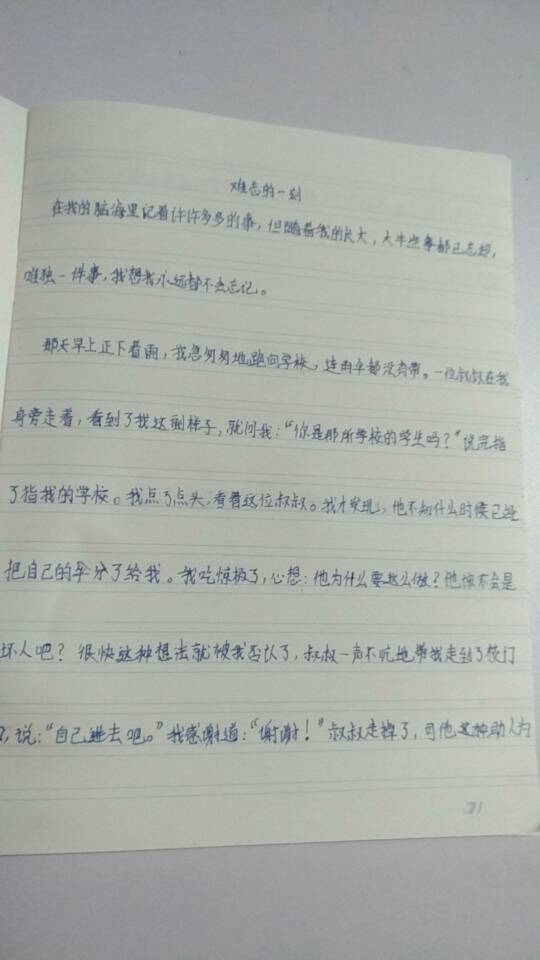 难忘的一刻
在我的脑海里记着许许多多的事，但随着我的长大，大半些事都已忘却，
唯独一件事，我想我永远都不会忘记。
那天早上正下着雨，我急匆匆地跑向学校，连雨伞都没有带。一位叔叔在我
身旁走着，看到了我这副样子，就问我：“你是那所学校的学生吗？”说完指
了指我的学校。我点了点头，看着这位叔叔。我才发现，他不知什么时候已经
把自己的伞分了给我。我吃惊极了，心想：他为什么要这么做？他该不会是
坏人吧？很快这种想法就被我否认了，叔叔一声不吭地带我走到了校门
，说：“自己进去吧。”我感谢道：“谢谢！”叔叔走掉了，可他这种助人为
31